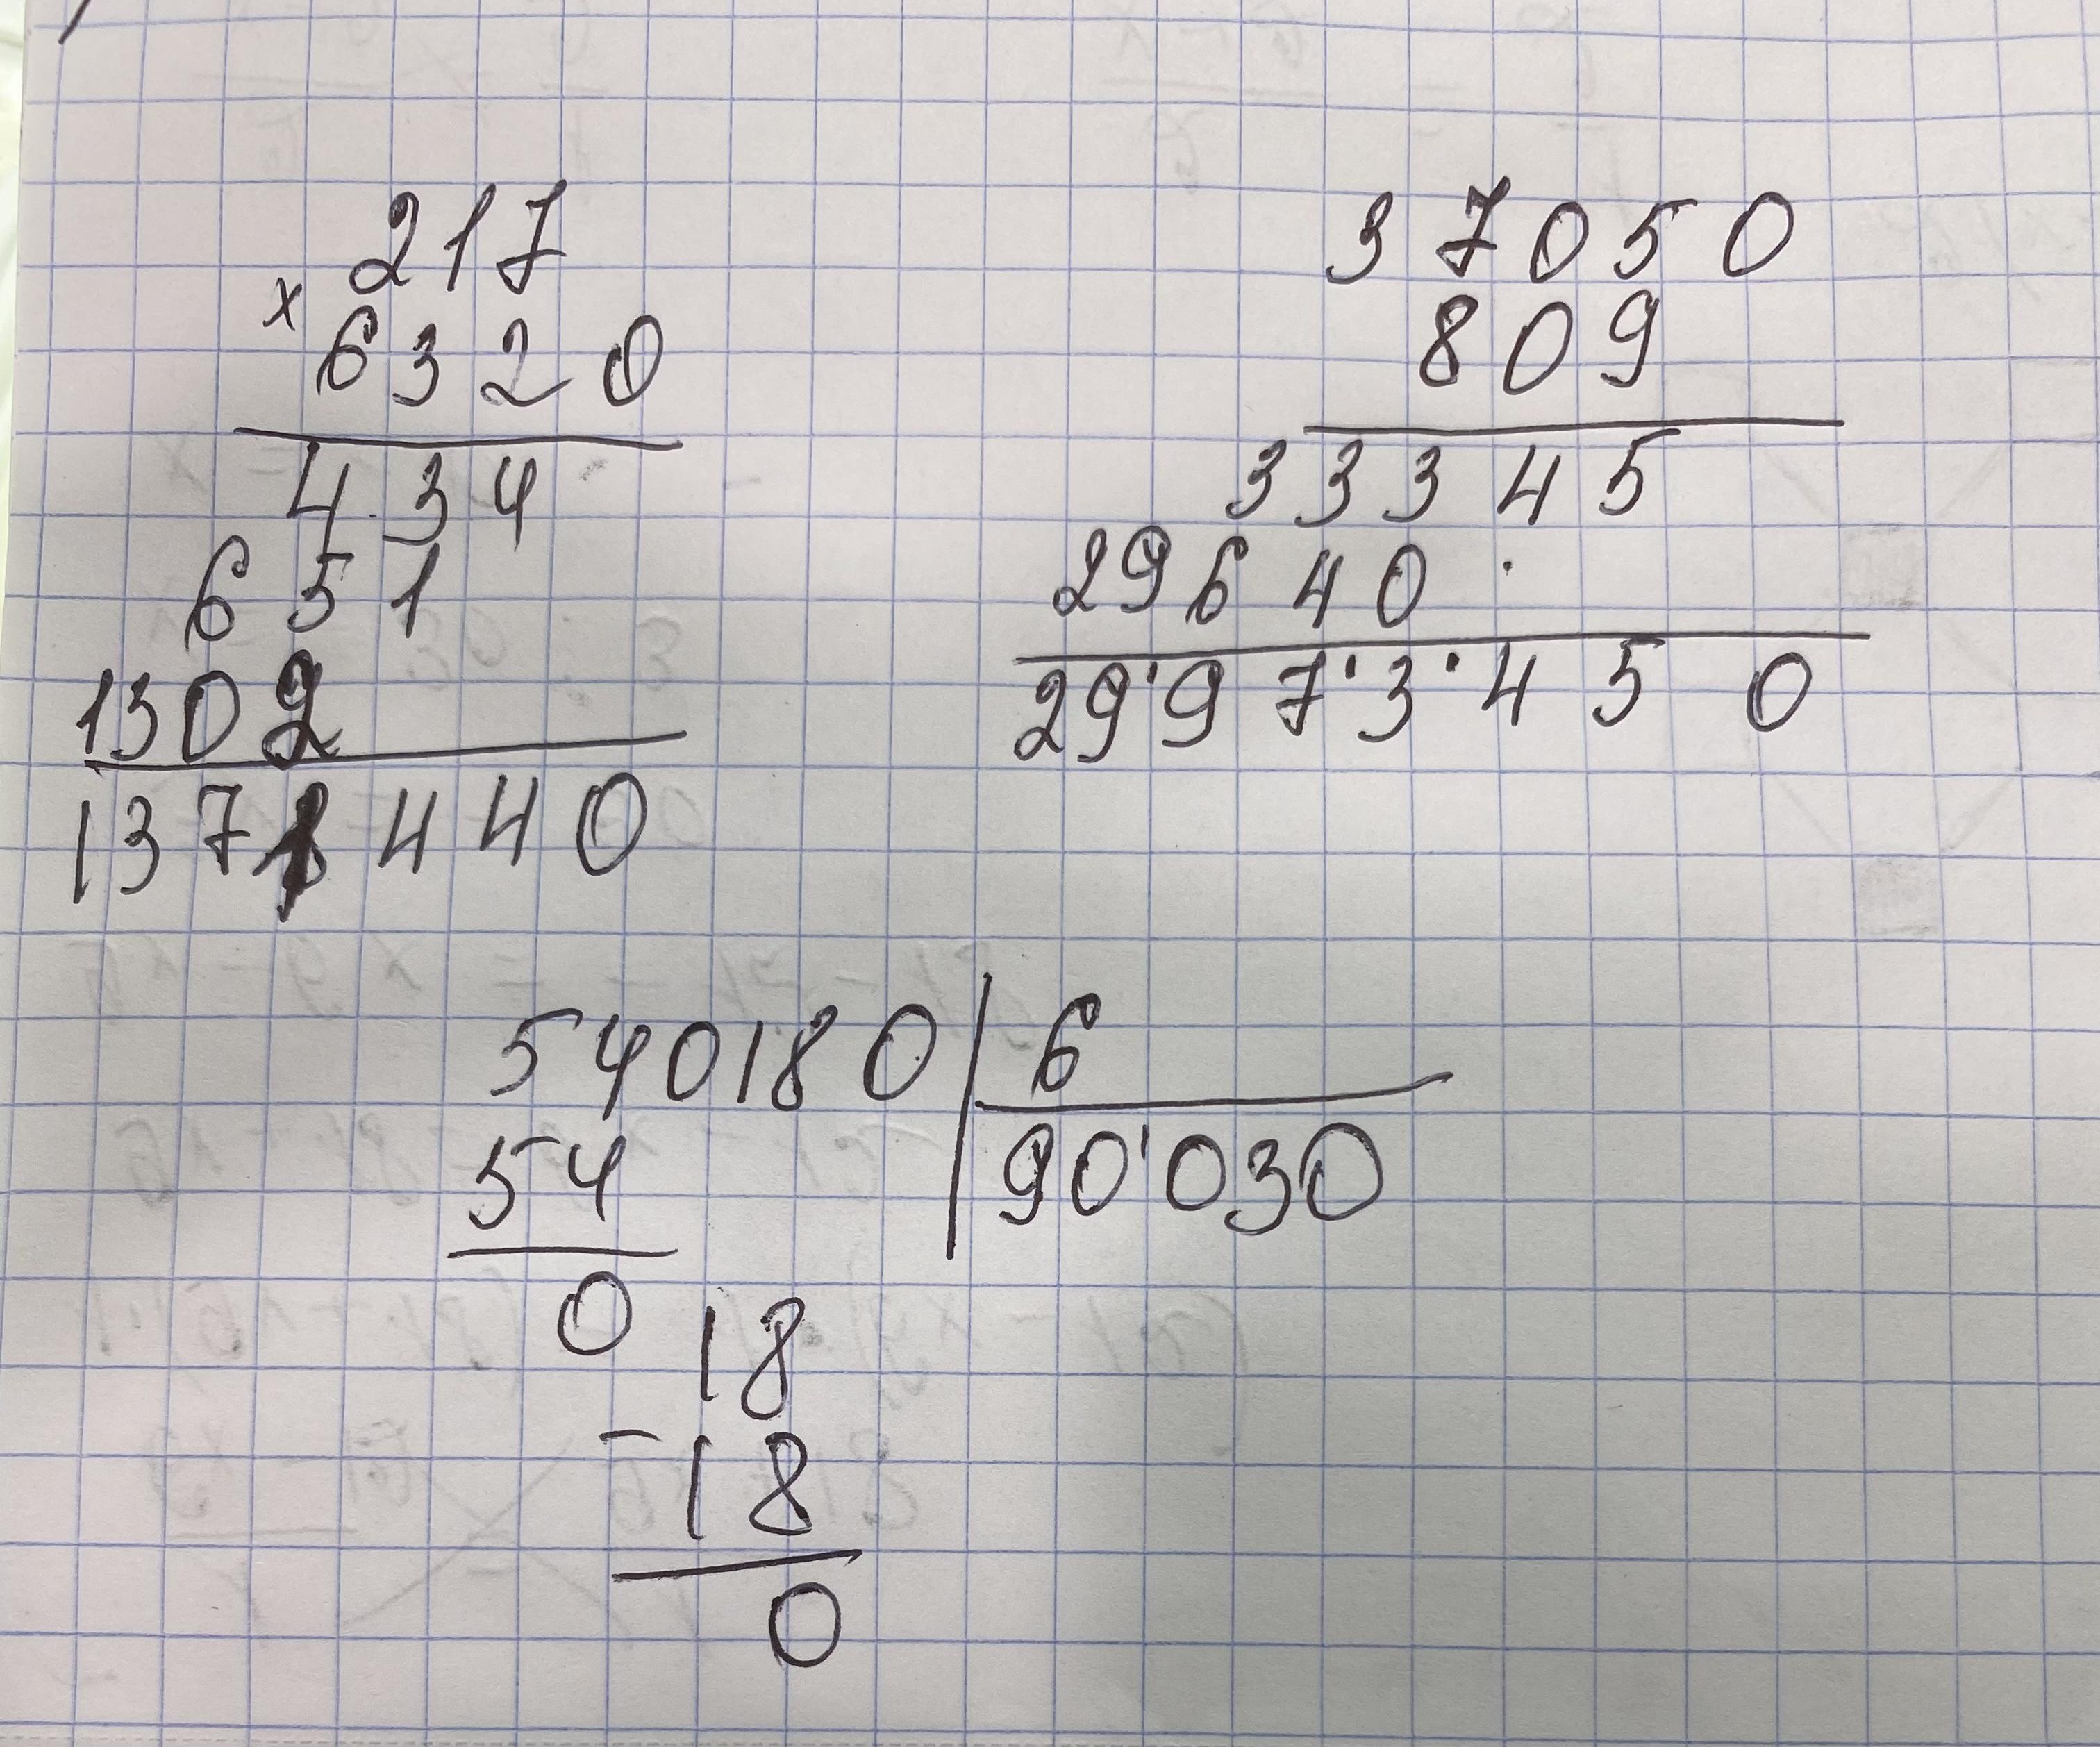 217
x 6320
434
651
1302
1371440
37050
809
33345
29640
29'97'3'450
540180 | 6
54 90'030
0 18
- 18
0